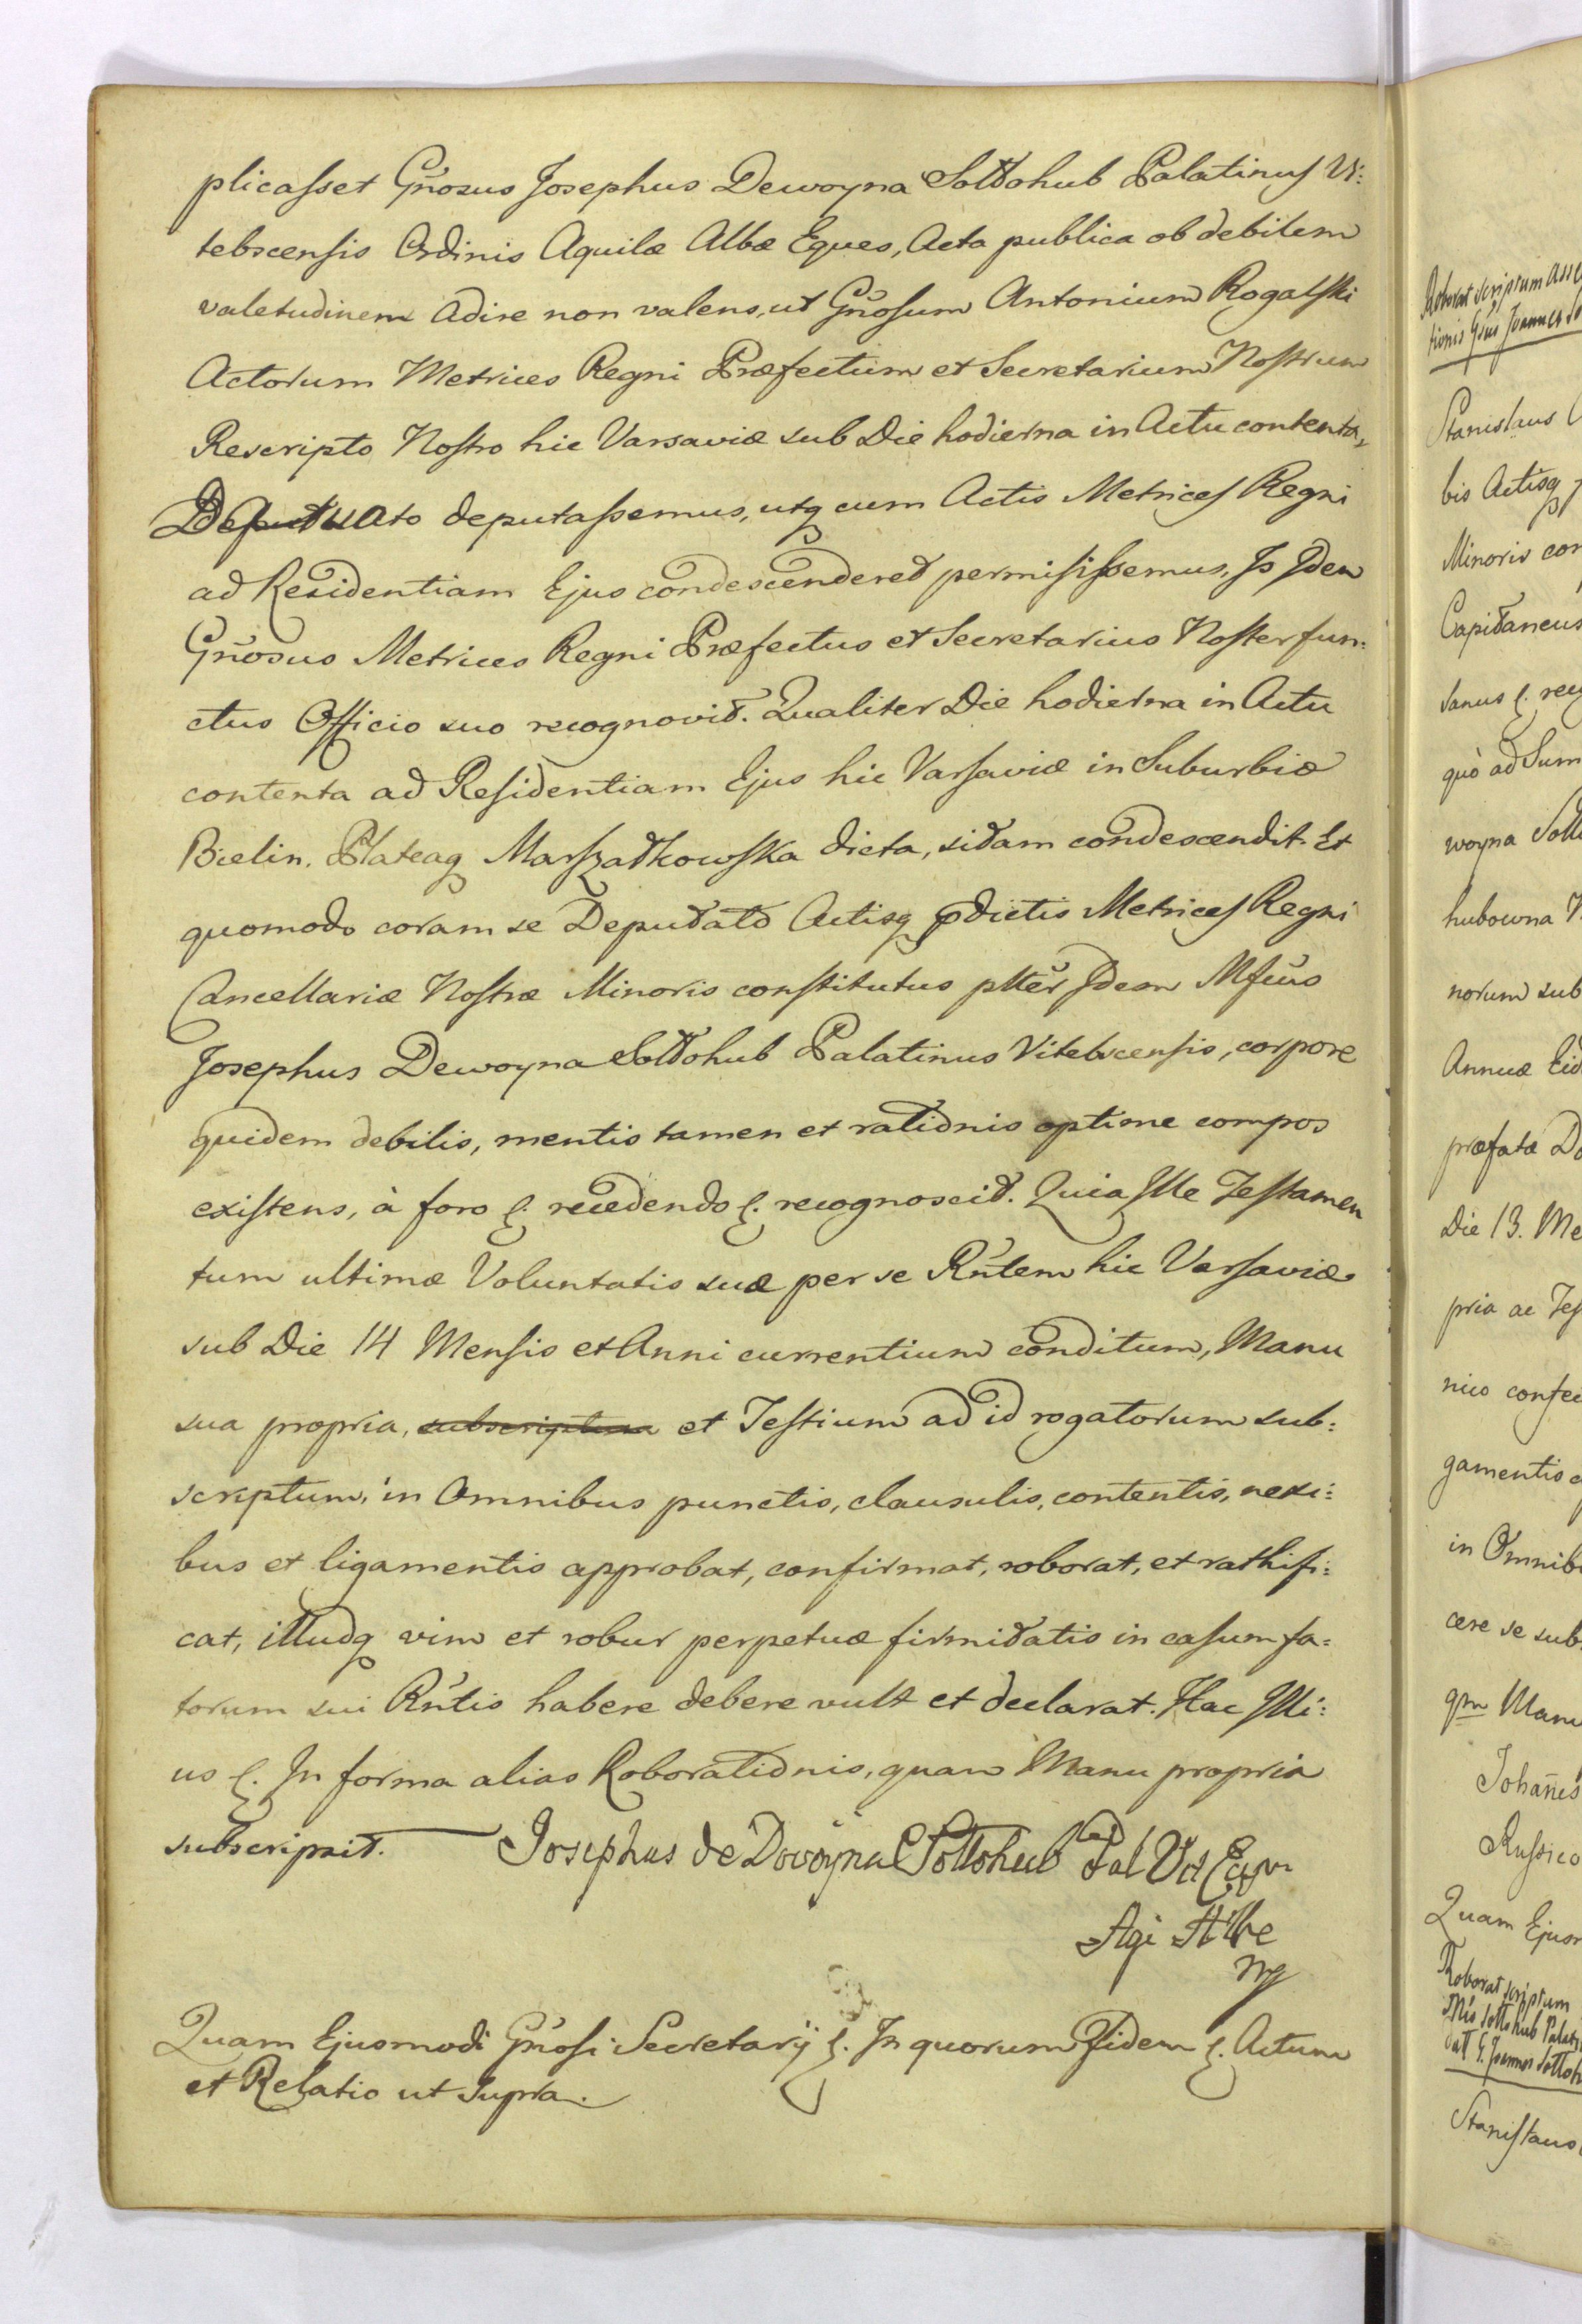 plicasset Gñosus Josephus Dewoyna Sołłohub Palatinus Vi:
tebscensis Ordinis Aquilæ Albæ Eques, Acta publica ob debilem
valetudinem adire non valens, ut Gñosum Antonium Rogalski
Actorum Metrices Regni Præfectum et Secretarium Nostrum
Rescripto Nostro hic Varsaviæ sub Die hodierna in Actu contenta,
ato deputassemus, utq cum Actis Metrices Regni
ad Residentiam Ejus condescenderet permisissemus, Is Idem
Gñosus Metrices Regni Præfectus et Secretarius Noster fun:
ctus Officio suo recognovit. Qualiter Die hodierna in Actu
contenta ad Residentiam Ejus hic Varsaviæ in Suburbio
Bielin. Plateaq Marszałkowska dicta, sitam condescendit. Et
quomodo coram se Deputato Actisq pdictis Metrices Regni
Cancellariæ Nostræ Minoris constitutus plter Idem Mfcus
Josephus Dewoyna Sołłohub Palatinus Vitebscensis, corpore
quidem debilis, mentis tamen et rationis optime compos
existens, à foro &. recedendo &. recognoscit. Quia Ille Testamen
tum ultimæ Voluntatis suæ per se Rñtem hic Varsaviæ
sub Die 14 Mensis et Anni currentium conditum, Manu
sua propria, subscriptum et Testium ad id rogatorum sub:
scriptum, in Omnibus punctis, clausulis, contentis, nexi:
bus et ligamentis approbat, confirmat, roborat, et rathifi:
cat, illudq vim et robur perpetuæ firmitatis in casum fa:
torum sui Rñtis habere debere vult et declarat. Hac Illi:
us &. In forma alias Roborationis, quam Manu propria
subscripsit. Josephus de Dovoyna Sołłohub Pal Vit Eqv
Aqi Albe
mp
Quam Ejusmodi Gñosi Secretarij &. In quorum Fidem &. Actum
et Relatio ut Supra.
Roborat scriptum
Stanislaus
bis Actisq
Minoris con
Capitaneus
quò ad Sum
woyna Soll
hubowna
norum sub
Annuæ Eid
præfata Do
Die 13. Me
pria ac Tes
nico confec
gamentis
in Omnib
cere se sub
qm Manu
Johañes
Russico
Quam Ejus
Roborat scriptum
Sołłohub Palat
Stanislaus